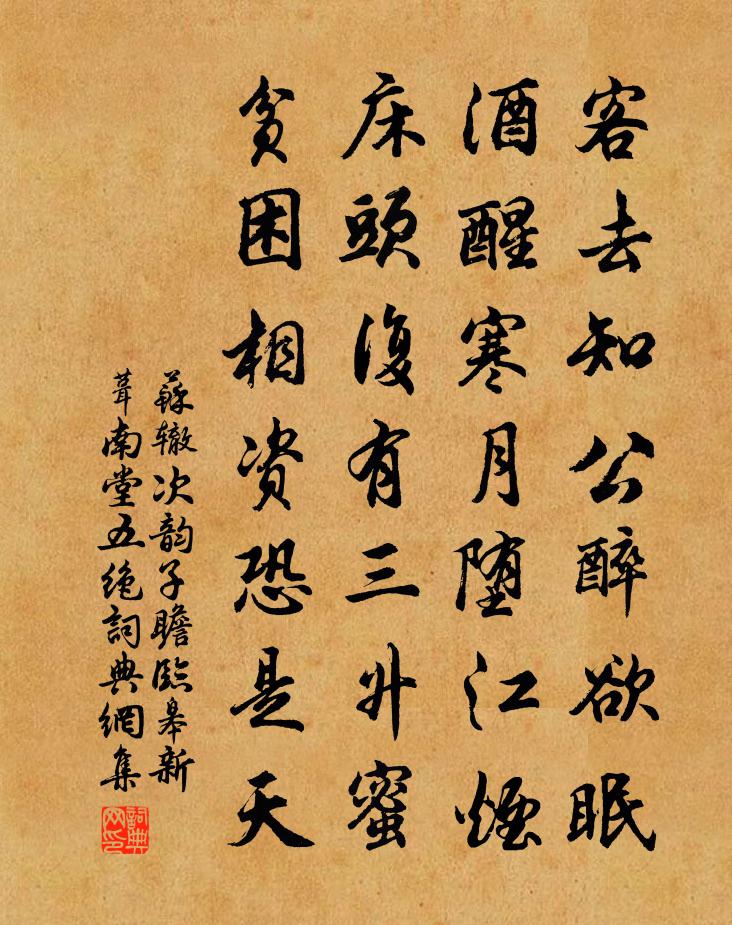 客去知公醉欲眠
酒醒寒月堕江煙
床頭復有三升蜜
貧困相资恐是天
蘇辙次韵子瞻臨皋新
葺南堂五绝詞典網集
詞典网印